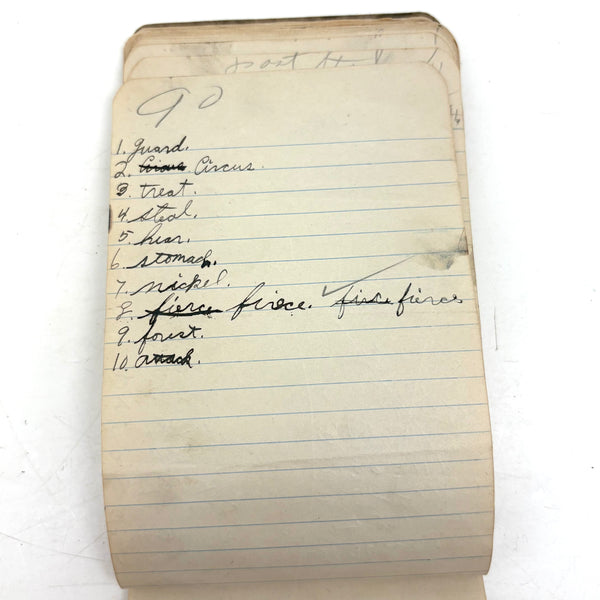 90
1. guard.
2. Circus.
3. treat.
4. steal.
5. hear.
6. stomach.
7. nickel.
8. fierce firece. fierce
9. forest.
10. attack.